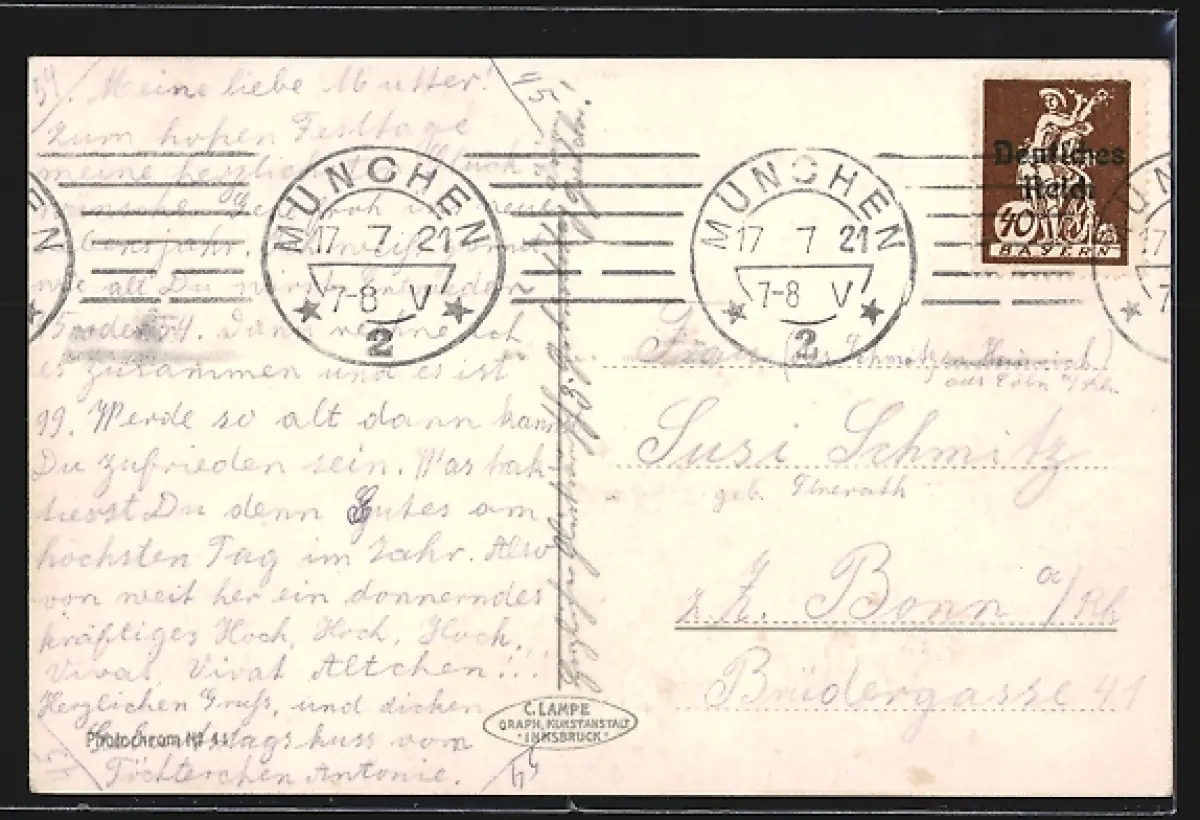 54. Meine liebe Mutter!
zum hohen Festtage
meine herzlichsten
neuen
Lebensjahr.
wie alt Du wirst
5 oder 54. Dann nehme ich
es zusammen und es ist
99. Werde so alt dann kann
Du zufrieden sein. Was
Du denn Gutes am
höchsten Tag im Jahr. Also
von weit her ein donnerndes
kräftiges Hoch, Hoch, Hoch,..
Vivat, Vivat Altchen!..
Herzlichen Gruß, und dicken
Geburtstagskuss vom
Töchterchen Antonie.
Photochrom Nº 44
45
C. LAMPE
GRAPH. KUNSTANSTALT
"INNSBRUCK"
MÜNCHEN
17 7 21
7-8 V
2
MÜNCHEN
17 7 21
7-8 V
2
Deutsches
Reich
40
BAYERN
Frau
Schmitz
aus Cöln a/Rhein
Susi Schmitz
geb.
z. Z. Bonn a/Rh
Brüdergasse 41